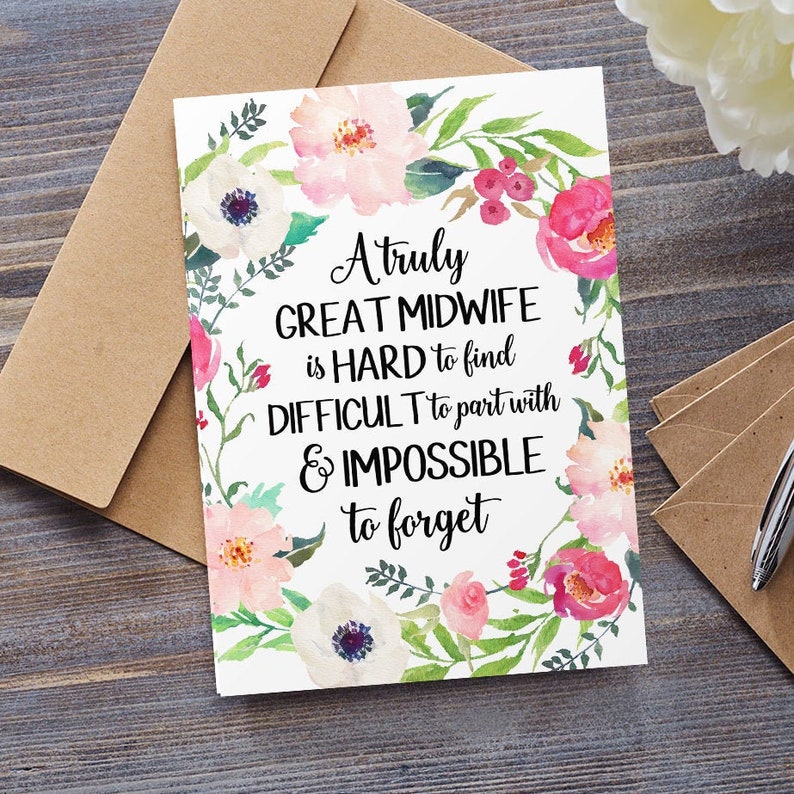 A truly
GREAT MIDWIFE
is HARD to find
DIFFICULT to part with
& IMPOSSIBLE
to forget